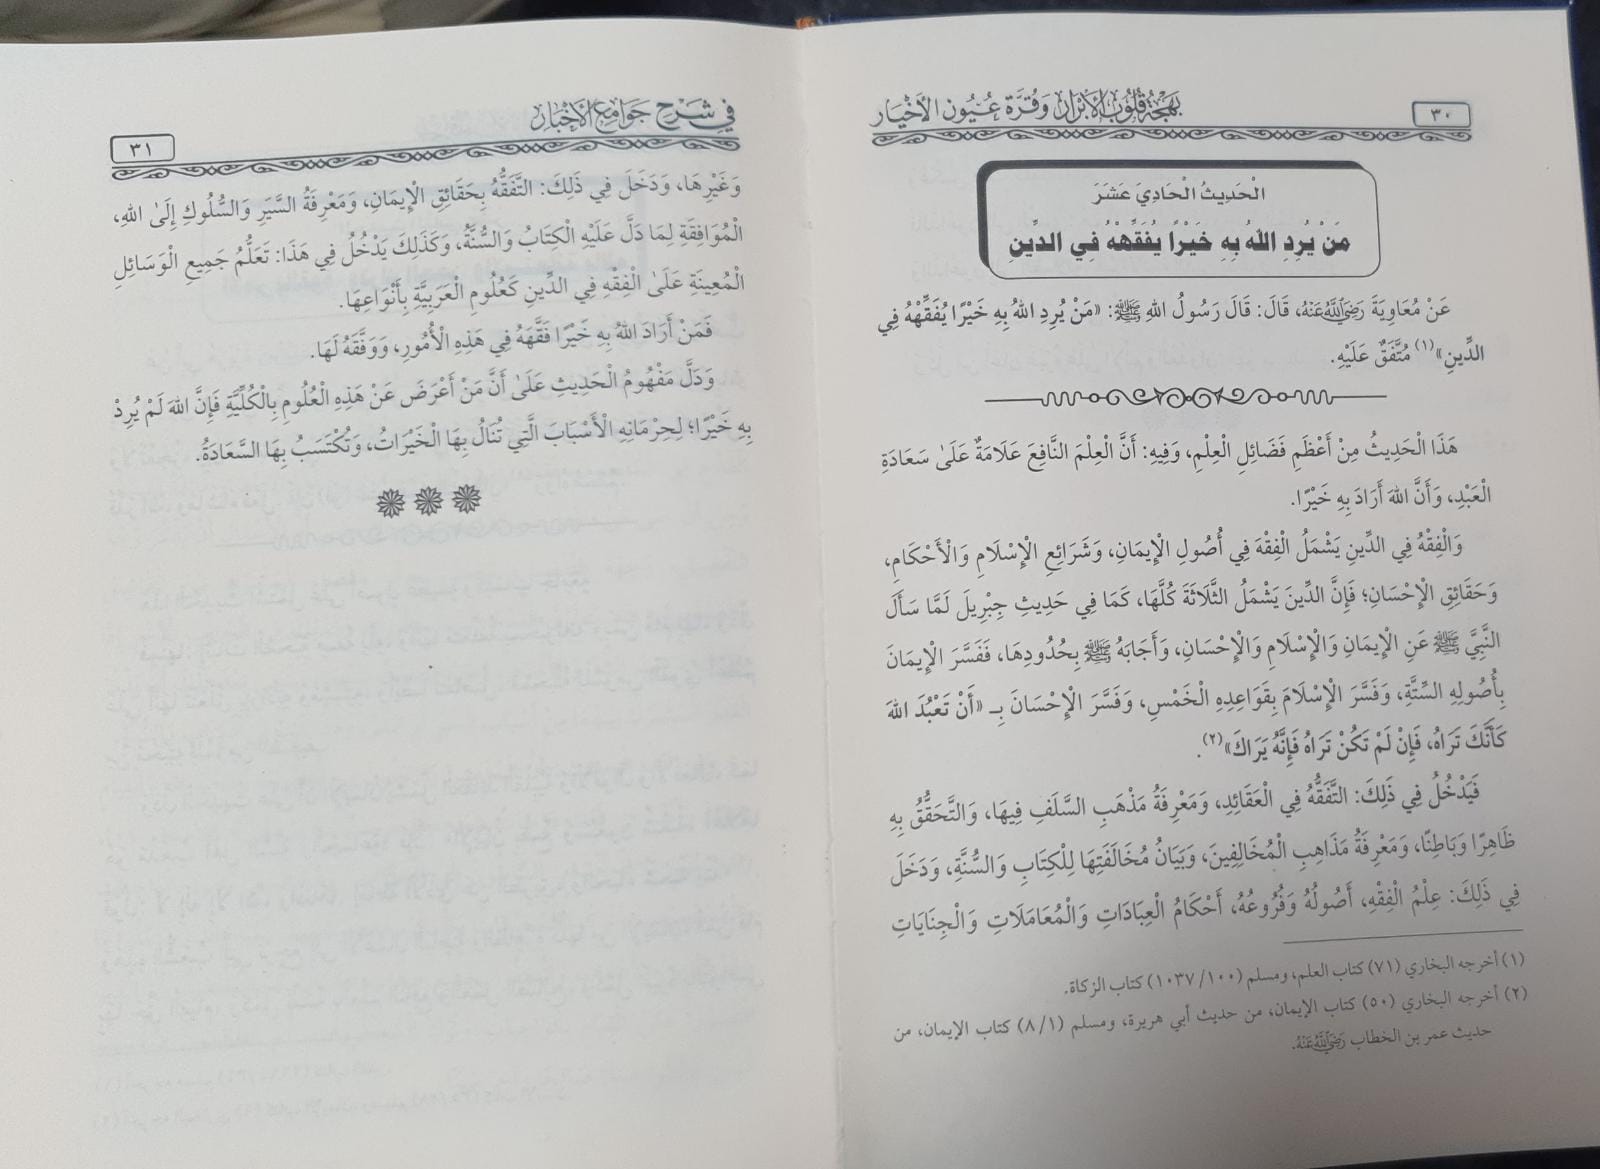 بَهْجَةُ قُلُوبِ الْأَبْرَارِ وَقُرَّةُ عُيُونِ الْأَخْيَارِ
٣٠
الْحَدِيثُ الْحَادِيَ عَشَرَ
مَنْ يُرِدِ اللهُ بِهِ خَيْرًا يُفَقِّهْهُ فِي الدِّينِ
عَنْ مُعَاوِيَةَ رَضِيَ اللَّهُ عَنْهُ، قَالَ: قَالَ رَسُولُ اللهِ ﷺ: «مَنْ يُرِدِ اللهُ بِهِ خَيْرًا يُفَقِّهْهُ فِي
الدِّينِ»(١) مُتَّفَقٌ عَلَيْهِ.
هَذَا الْحَدِيثُ مِنْ أَعْظَمِ فَضَائِلِ الْعِلْمِ، وَفِيهِ: أَنَّ الْعِلْمَ النَّافِعَ عَلَامَةٌ عَلَىٰ سَعَادَةِ
الْعَبْدِ، وَأَنَّ اللهَ أَرَادَ بِهِ خَيْرًا.
وَالْفِقْهُ فِي الدِّينِ يَشْمَلُ الْفِقْهَ فِي أُصُولِ الْإِيمَانِ، وَشَرَائِعِ الْإِسْلَامِ وَالْأَحْكَامِ،
وَحَقَائِقِ الْإِحْسَانِ؛ فَإِنَّ الدِّينَ يَشْمَلُ الثَّلَاثَةَ كُلَّهَا، كَمَا فِي حَدِيثِ جِبْرِيلَ لَمَّا سَأَلَ
النَّبِيَّ ﷺ عَنِ الْإِيمَانِ وَالْإِسْلَامِ وَالْإِحْسَانِ، وَأَجَابَهُ ﷺ بِحُدُودِهَا، فَفَسَّرَ الْإِيمَانَ
بِأُصُولِهِ السِّتَّةِ، وَفَسَّرَ الْإِسْلَامَ بِقَوَاعِدِهِ الْخَمْسِ، وَفَسَّرَ الْإِحْسَانَ بِـ «أَنْ تَعْبُدَ اللهَ
كَأَنَّكَ تَرَاهُ، فَإِنْ لَمْ تَكُنْ تَرَاهُ فَإِنَّهُ يَرَاكَ»(٢).
فَيَدْخُلُ فِي ذَلِكَ: التَّفَقُّهُ فِي الْعَقَائِدِ، وَمَعْرِفَةُ مَذْهَبِ السَّلَفِ فِيهَا، وَالتَّحَقُّقُ بِهِ
ظَاهِرًا وَبَاطِنًا، وَمَعْرِفَةُ مَذَاهِبِ الْمُخَالِفِينَ، وَبَيَانُ مُخَالَفَتِهَا لِلْكِتَابِ وَالسُّنَّةِ، وَدَخَلَ
فِي ذَلِكَ: عِلْمُ الْفِقْهِ، أُصُولُهُ وَفُرُوعُهُ، أَحْكَامُ الْعِبَادَاتِ وَالْمُعَامَلَاتِ وَالْجِنَايَاتِ
(١) أخرجه البخاري (٧١) كتاب العلم، ومسلم (١٠٣٧/١٠٠) كتاب الزكاة.
(٢) أخرجه البخاري (٥٠) كتاب الإيمان، من حديث أبي هريرة، ومسلم (٨/١) كتاب الإيمان، من
حديث عمر بن الخطاب رَضِيَ اللَّهُ عَنْهُ.
فِي شَرْحِ جَوَامِعِ الْأَخْبَارِ
٣١
وَغَيْرِهَا، وَدَخَلَ فِي ذَلِكَ: التَّفَقُّهُ بِحَقَائِقِ الْإِيمَانِ، وَمَعْرِفَةُ السَّيْرِ وَالسُّلُوكِ إِلَىٰ اللهِ،
الْمُوَافِقَةِ لِمَا دَلَّ عَلَيْهِ الْكِتَابُ وَالسُّنَّةُ، وَكَذَلِكَ يَدْخُلُ فِي هَذَا: تَعَلُّمُ جَمِيعِ الْوَسَائِلِ
الْمُعِينَةِ عَلَىٰ الْفِقْهِ فِي الدِّينِ كَعُلُومِ الْعَرَبِيَّةِ بِأَنْوَاعِهَا.
فَمَنْ أَرَادَ اللهُ بِهِ خَيْرًا فَقَّهَهُ فِي هَذِهِ الْأُمُورِ، وَوَفَّقَهُ لَهَا.
وَدَلَّ مَفْهُومُ الْحَدِيثِ عَلَىٰ أَنَّ مَنْ أَعْرَضَ عَنْ هَذِهِ الْعُلُومِ بِالْكُلِّيَّةِ فَإِنَّ اللهَ لَمْ يُرِدْ
بِهِ خَيْرًا؛ لِحِرْمَانِهِ الْأَسْبَابَ الَّتِي تُنَالُ بِهَا الْخَيْرَاتُ، وَتُكْتَسَبُ بِهَا السَّعَادَةُ.